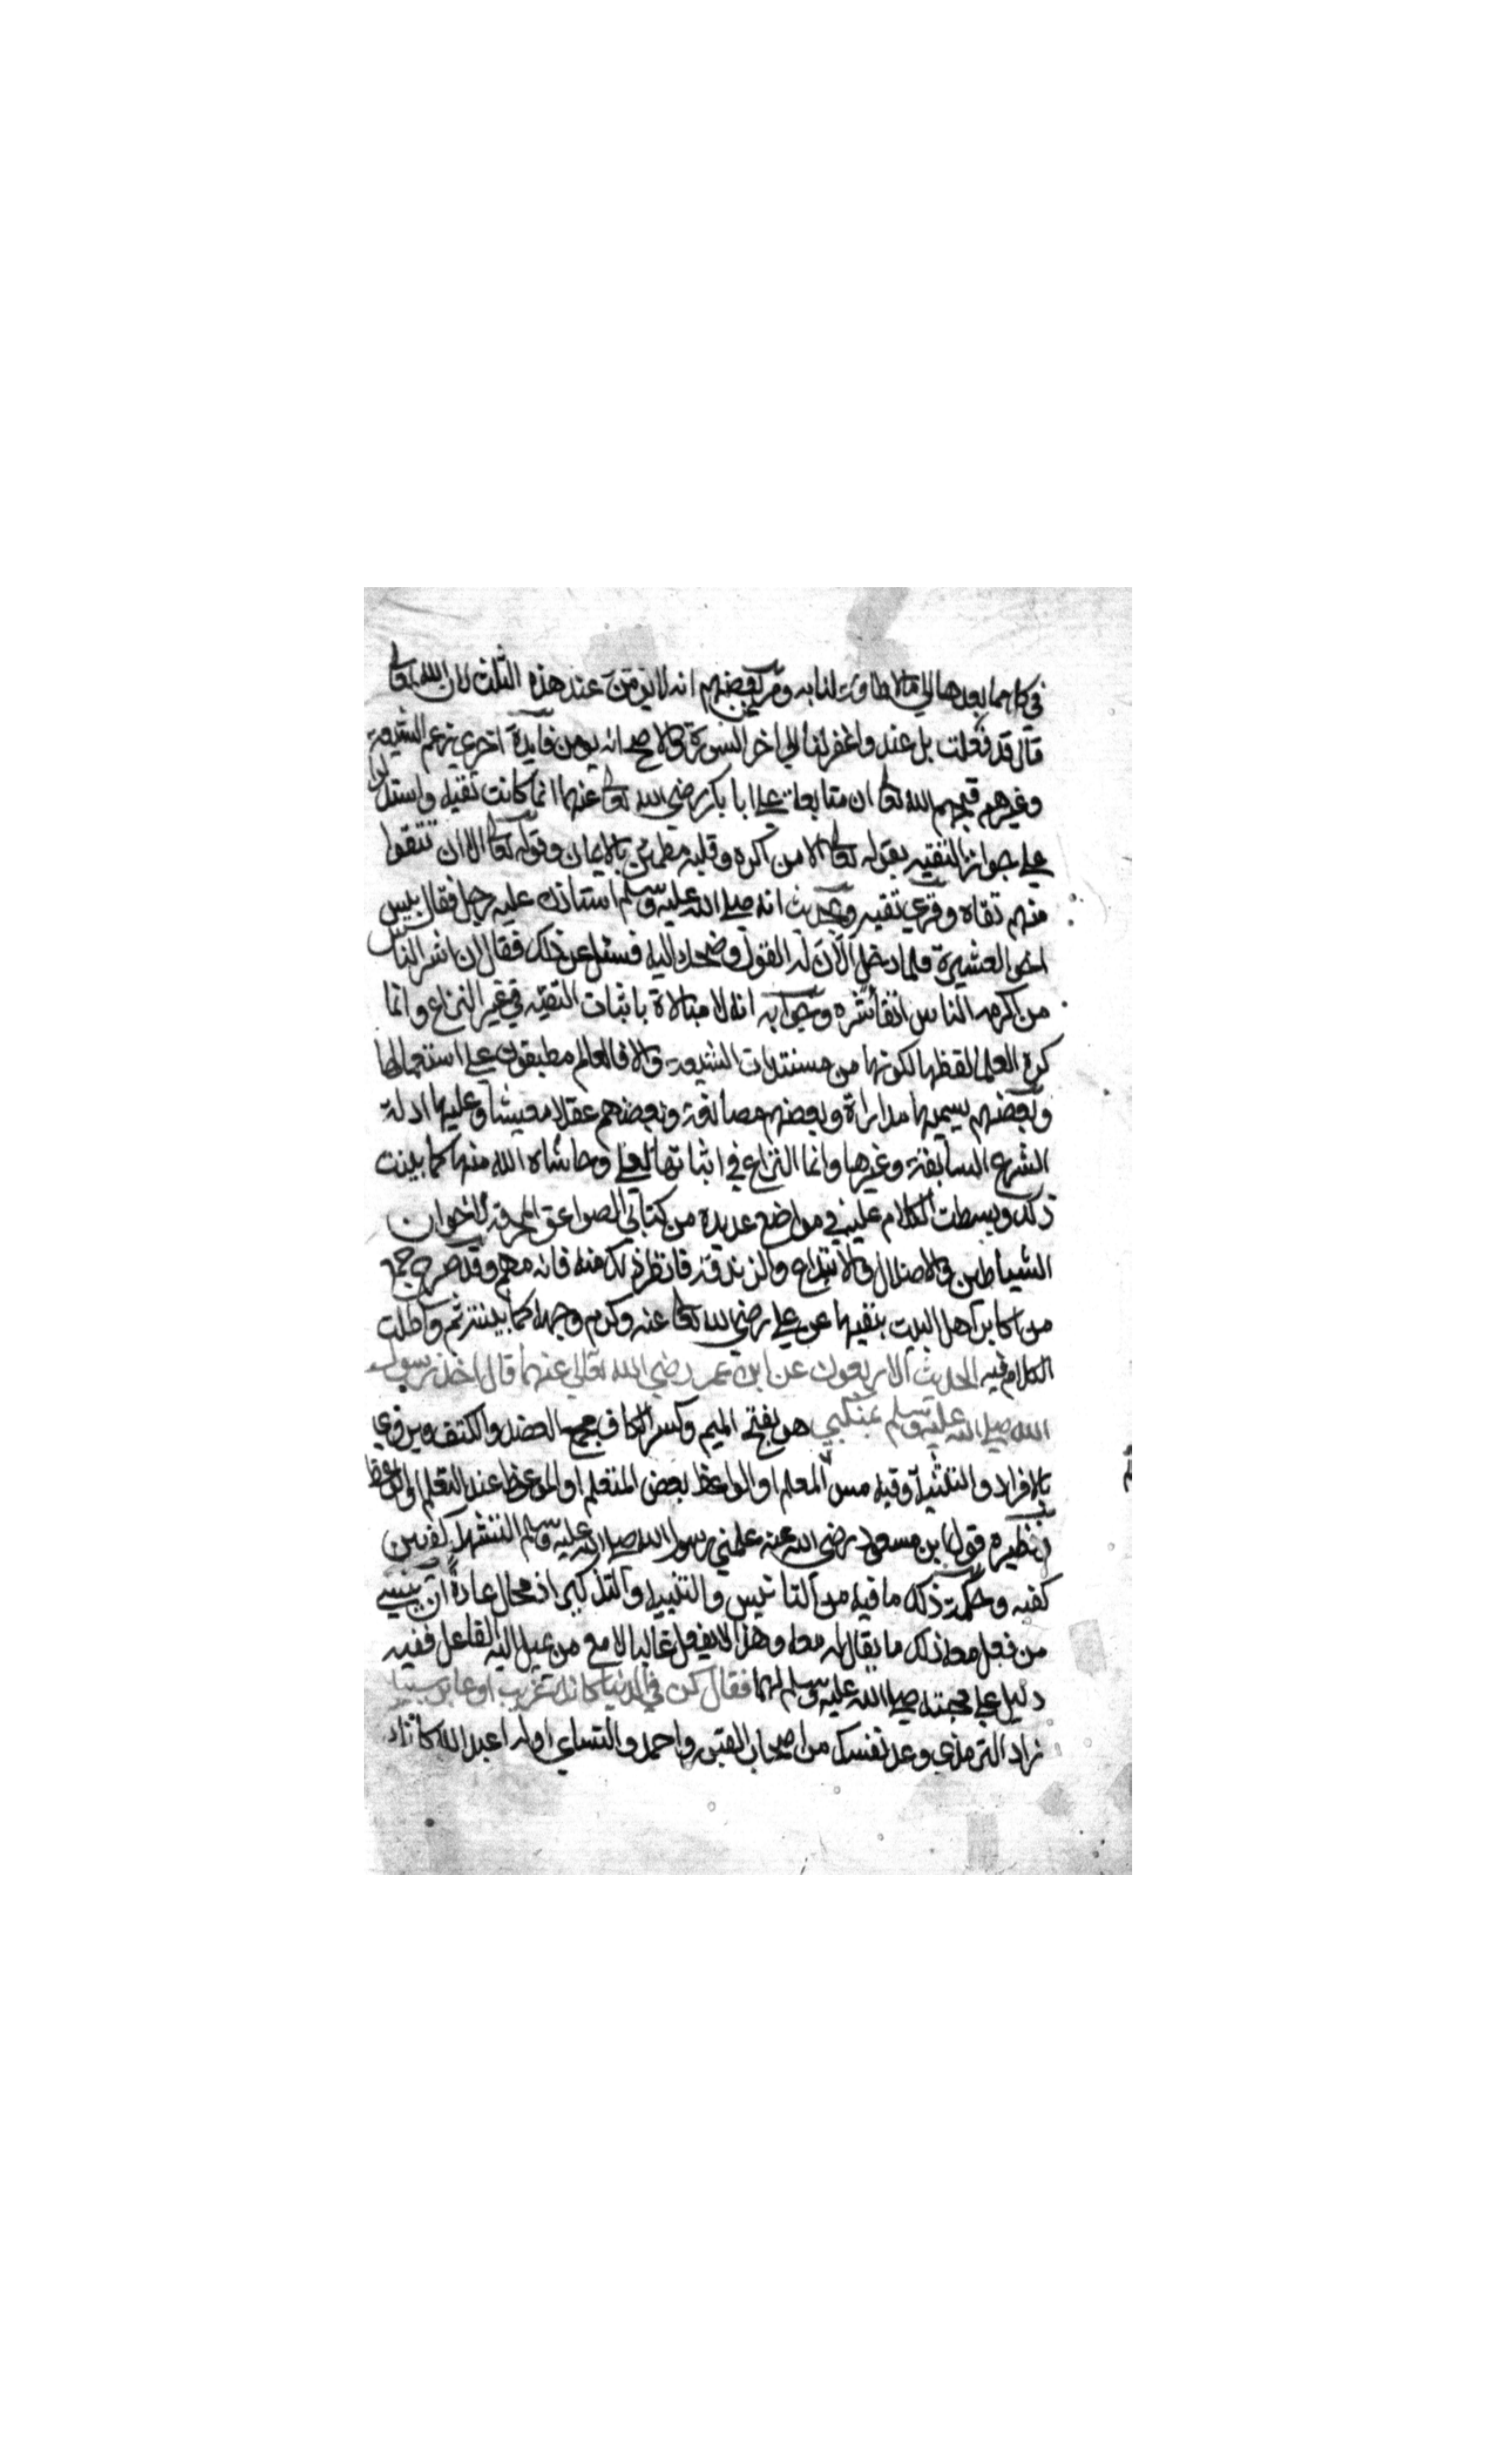 في كل ما بعدها الي ما لا طاقة لنا به وقول بعضهم انه لا يؤمن عند هذه الثلث لان الله تعالى
قال قد فعلت بل عند واغفر لنا الي اخر السورة والاصح انه يؤمن فايدة اخري تزعم الشيعة
وغيرهم قبحهم الله تعالى ان متابعة علي ابا بكر رضي الله تعالى عنهما انما كانت تقيه واستدلوا
علي جواز التقيه بقوله تعالى الا من اكره وقلبه مطمئن بالايمان وقوله تعالى الا ان تتقوا
منهم تقاه وقري تقيه وبحديث انه صلي الله عليه وسلم استاذن عليه رجل فقال بيس
اخي العشيرة فلما دخل الان له القول وضحك اليه فسئل عن ذلك فقال ان اشر الناس
من اكرمه الناس اتقا شره وجوابه انه لا مبالاة باثبات التقيه في غير النزاع وانما
كره العلما لفظها لكونها من مستندات الشيعة والا فالعالم مطبقون علي استعمالها
وبعضهم يسميها مداراة وبعضهم مصانعة وبعضهم عقلا معيشا وعليها ادلة
الشرع السابقة وغيرها وانما النزاع في اثباتها لعلي وحاشاه الله منها كما بينت
ذلك وبسطت الكلام عليه في مواضع عديده من كتابي الصواعق المحرقه لاخوان
الشياطين والاضلال والابتداع والزندقة فانظر ذلك منه فانه مهم وقد صرح جمع
من اكابر اهل البيت بنفيها عن علي رضي الله تعالى عنه وكرم وجهه كما بينته ثم واطلت
الكلام فيه الحديث الاربعون عن ابن عمر رضي الله تعالي عنهما قال اخذ رسول
الله صلي الله عليه وسلم بمنكبي هو بفتح الميم وكسر الكاف مجمع العضد والكتف ويروي
بالافراد والتثنية وفيه مس المعلم او الواعظ بعض المتعلم او الموعوظ عند التعلم او الوعظ
ونظيره قول ابن مسعود رضي الله عنه علمني رسول الله صلي الله عليه وسلم التشهد كفي بين
كفيه وحكمة ذلك ما فيه من التانيس والتنبيه والتذكير اذ محال عادة ان ينسي
من فعل معه ذلك ما يقال له معه وهذا لا يفعل غالبا الا مع من يميل اليه الفاعل ففيه
دليل علي محبته صلي الله عليه وسلم لهما فقال كن في الدنيا كانك غريب او عابر سبيل
زاد الترمذي وعد نفسك من اصحاب القبور واحمد والنساي اوله اعبد الله كانك